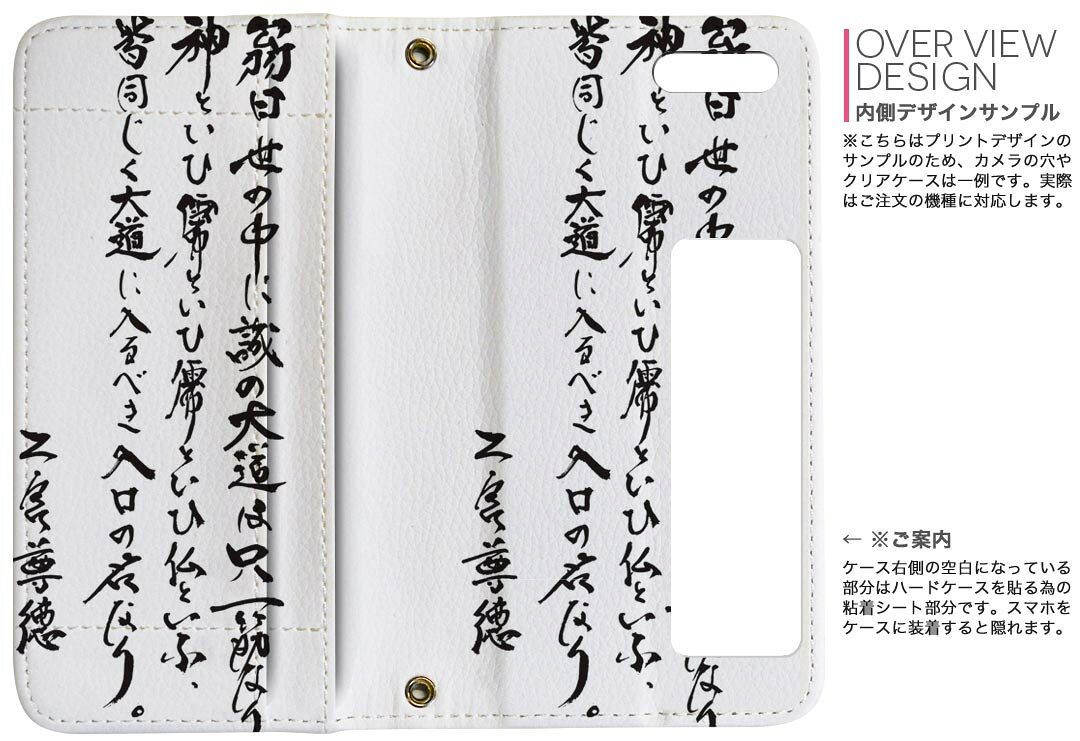 翁曰世の中に誠の大道は只一筋なり
神といひ儒といひ儒といひ仏といふ、
皆同じく大道に入るべき入口の名なり。
二宮尊徳
世の中
神といひ儒といひ儒といひ仏といふ、
皆同じく大道に入るべき入口の名なり。
二宮尊徳
OVER VIEW
DESIGN
内側デザインサンプル
※こちらはプリントデザインの
サンプルのため、カメラの穴や
クリアケースは一例です。実際
はご注文の機種に対応します。
← ※ご案内
ケース右側の空白になっている
部分はハードケースを貼る為の
粘着シート部分です。スマホを
ケースに装着すると隠れます。